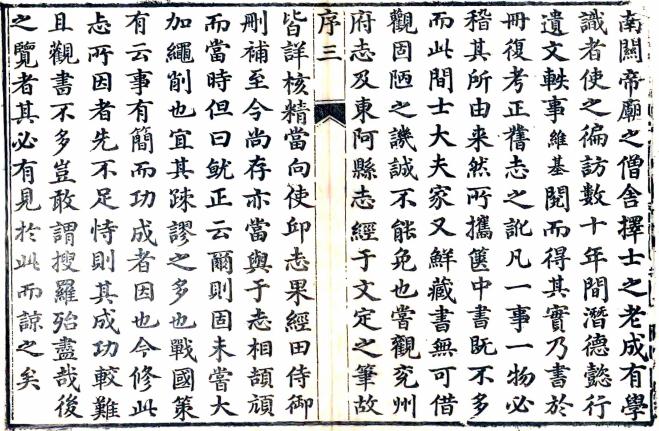 南關帝廟之僧舍擇士之老成有學
識者使之徧訪數十年間潛德懿行
遺文軼事維基閱而得其實乃書於
冊復考正舊志之訛凡一事一物必
稽其所由来然所攜篋中書既不多
而此間士大夫家又鮮藏書無可借
觀固陋之譏誠不能免也嘗觀兖州
府志及東阿縣志經于文定之筆故
序三
皆詳核精當向使邱志果經田侍御
刪補至今尚存亦當與于志相頡頏
而當時但曰鱿正云爾則固未嘗大
加繩削也宜其踈謬之多也戰國策
有云事有簡而功成者因也今修此
志所因者先不足恃則其成功較難
且觀書不多豈敢謂搜羅殆盡哉後
之覽者其必有見於此而諒之矣